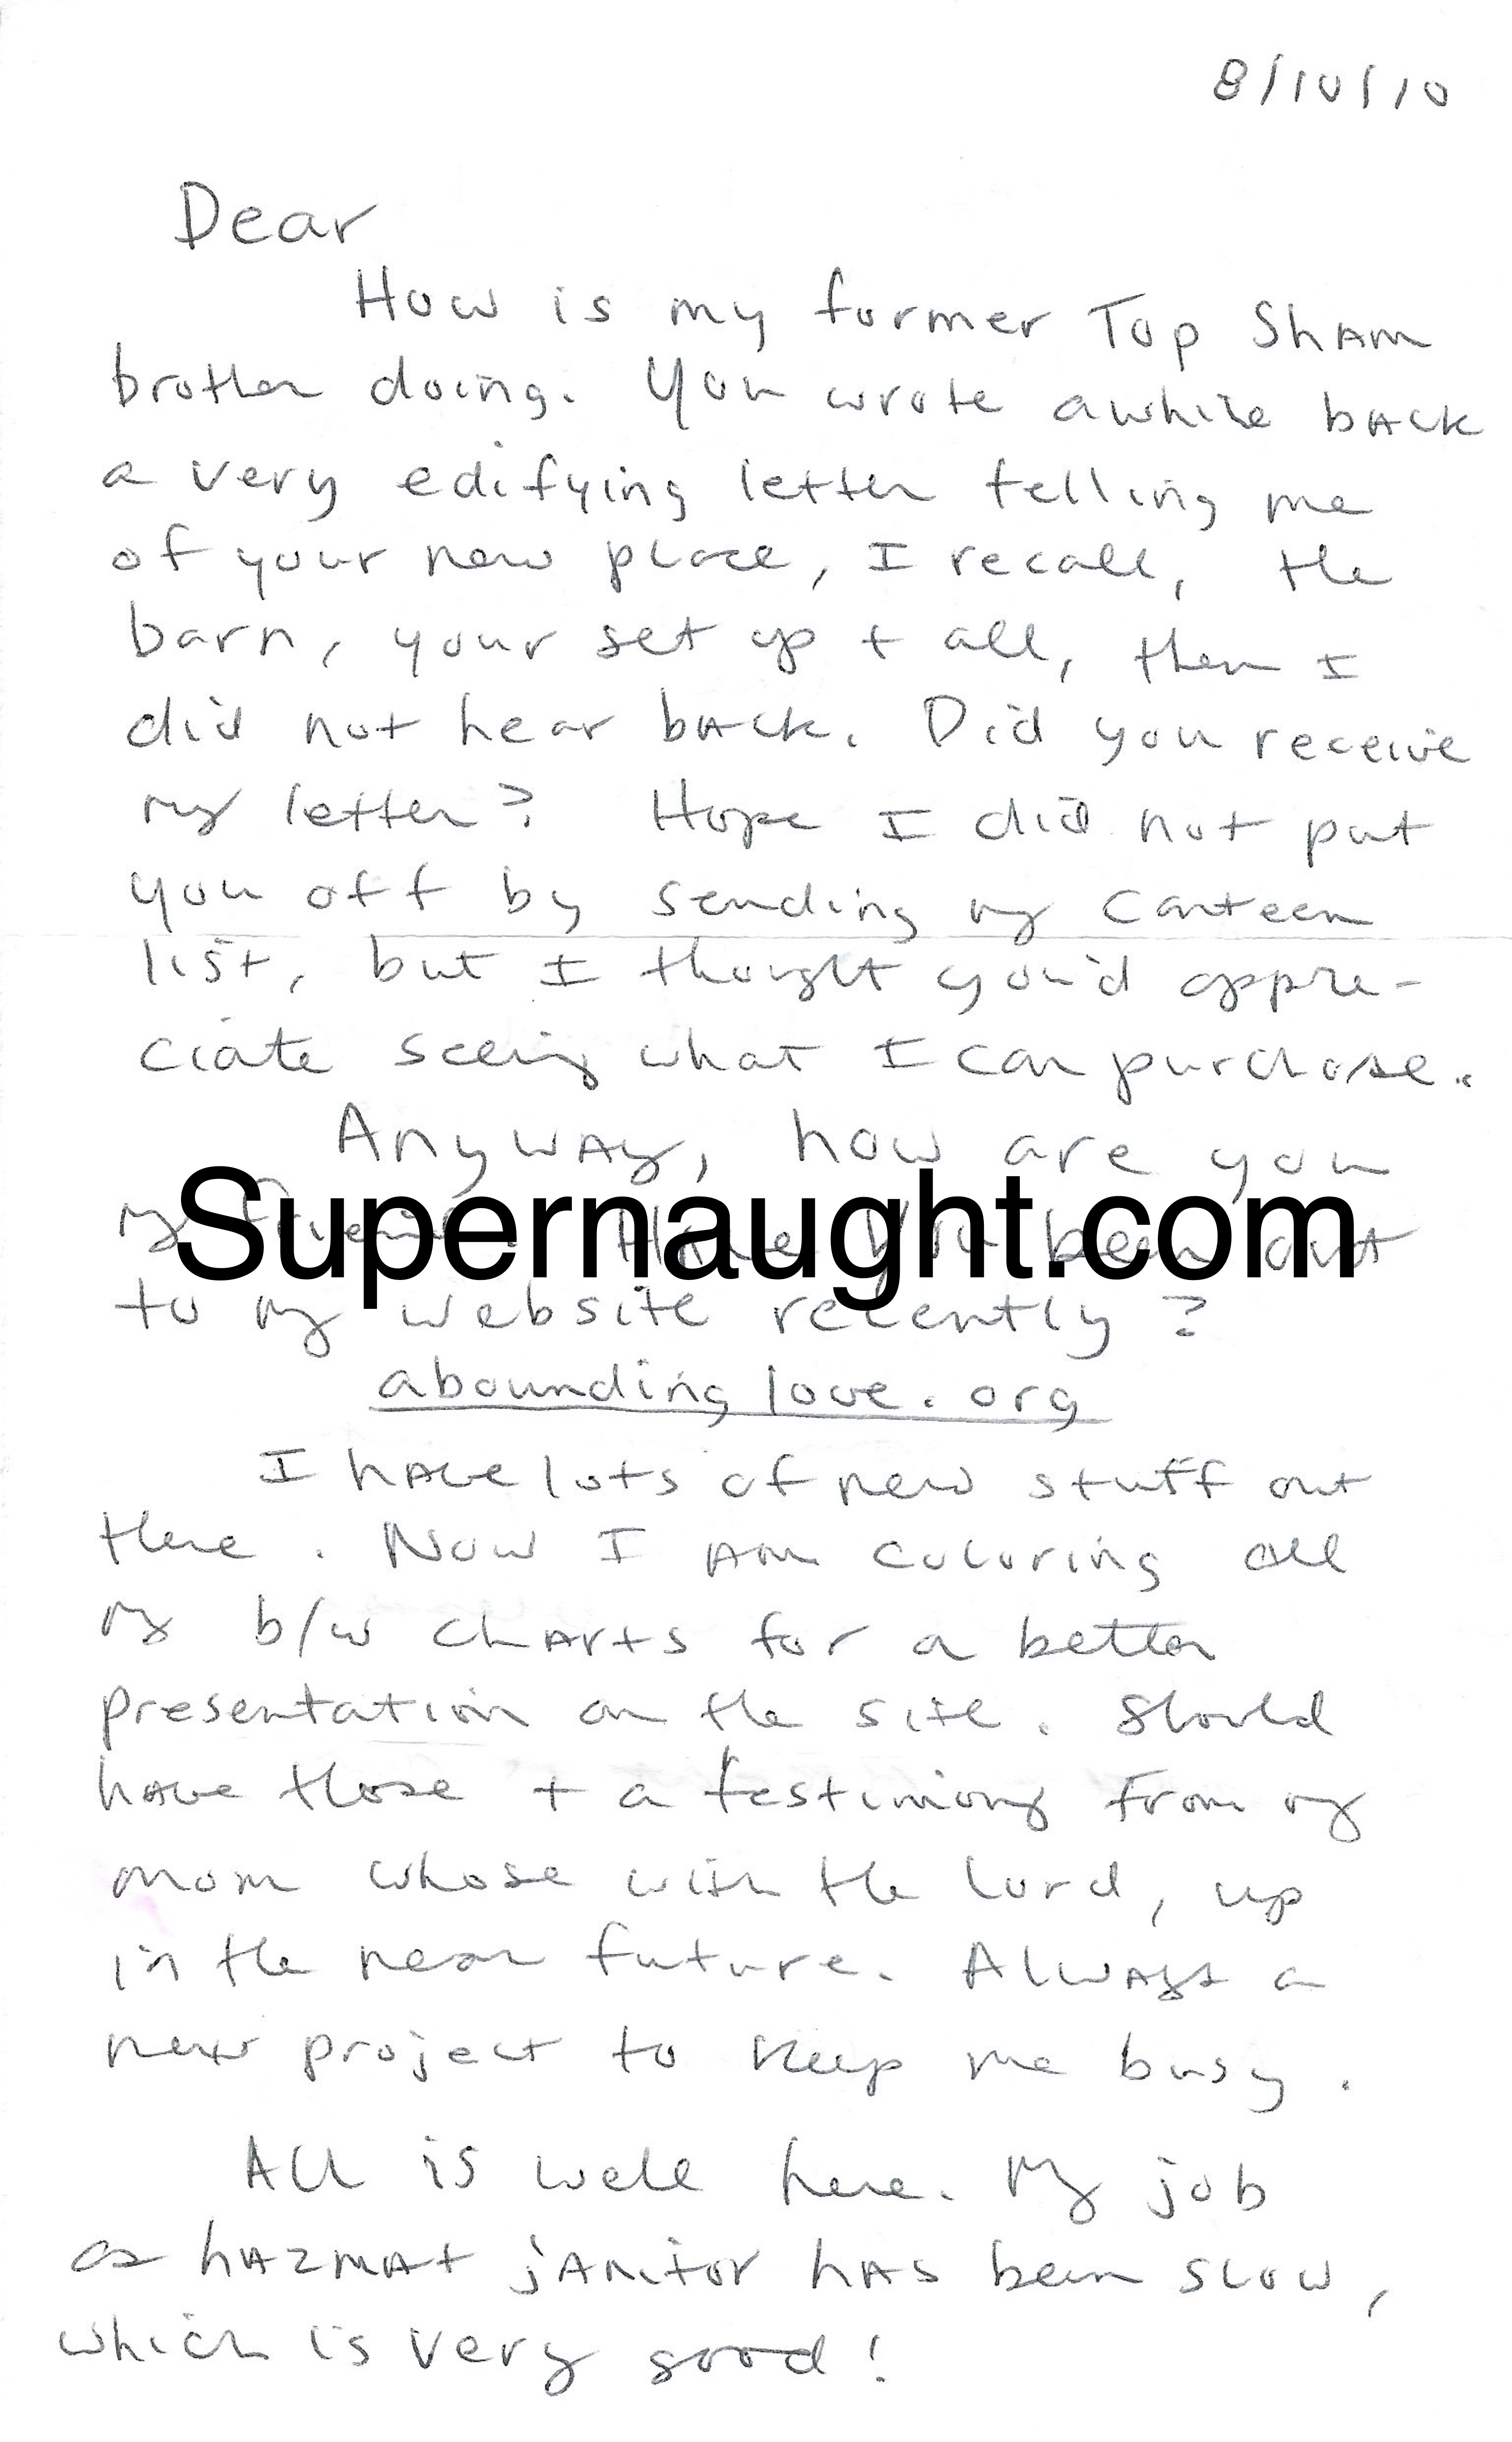 8/10/10
Dear
How is my former Top Sham
brother doing. You wrote awhile back
a very edifying letter telling me
of your new place, I recall, the
barn, your set up + all, then I
did not hear back. Did you receive
my letter? Hope I did not put
you off by sending my canteen
list, but I thought you'd appre-
ciate seeing what I can purchase.
Anyway, how are you
my friend. Have you been out
Supernaught.com
to my website recently?
abounding love.org
I have lots of new stuff out
there. Now I am coloring all
my b/w charts for a better
presentation on the site. Should
have those + a testimony from my
mom whose with the Lord, up
in the near future. Always a
new project to keep me busy.
All is well here. My job
as hazmat janitor has been slow,
which is very good!